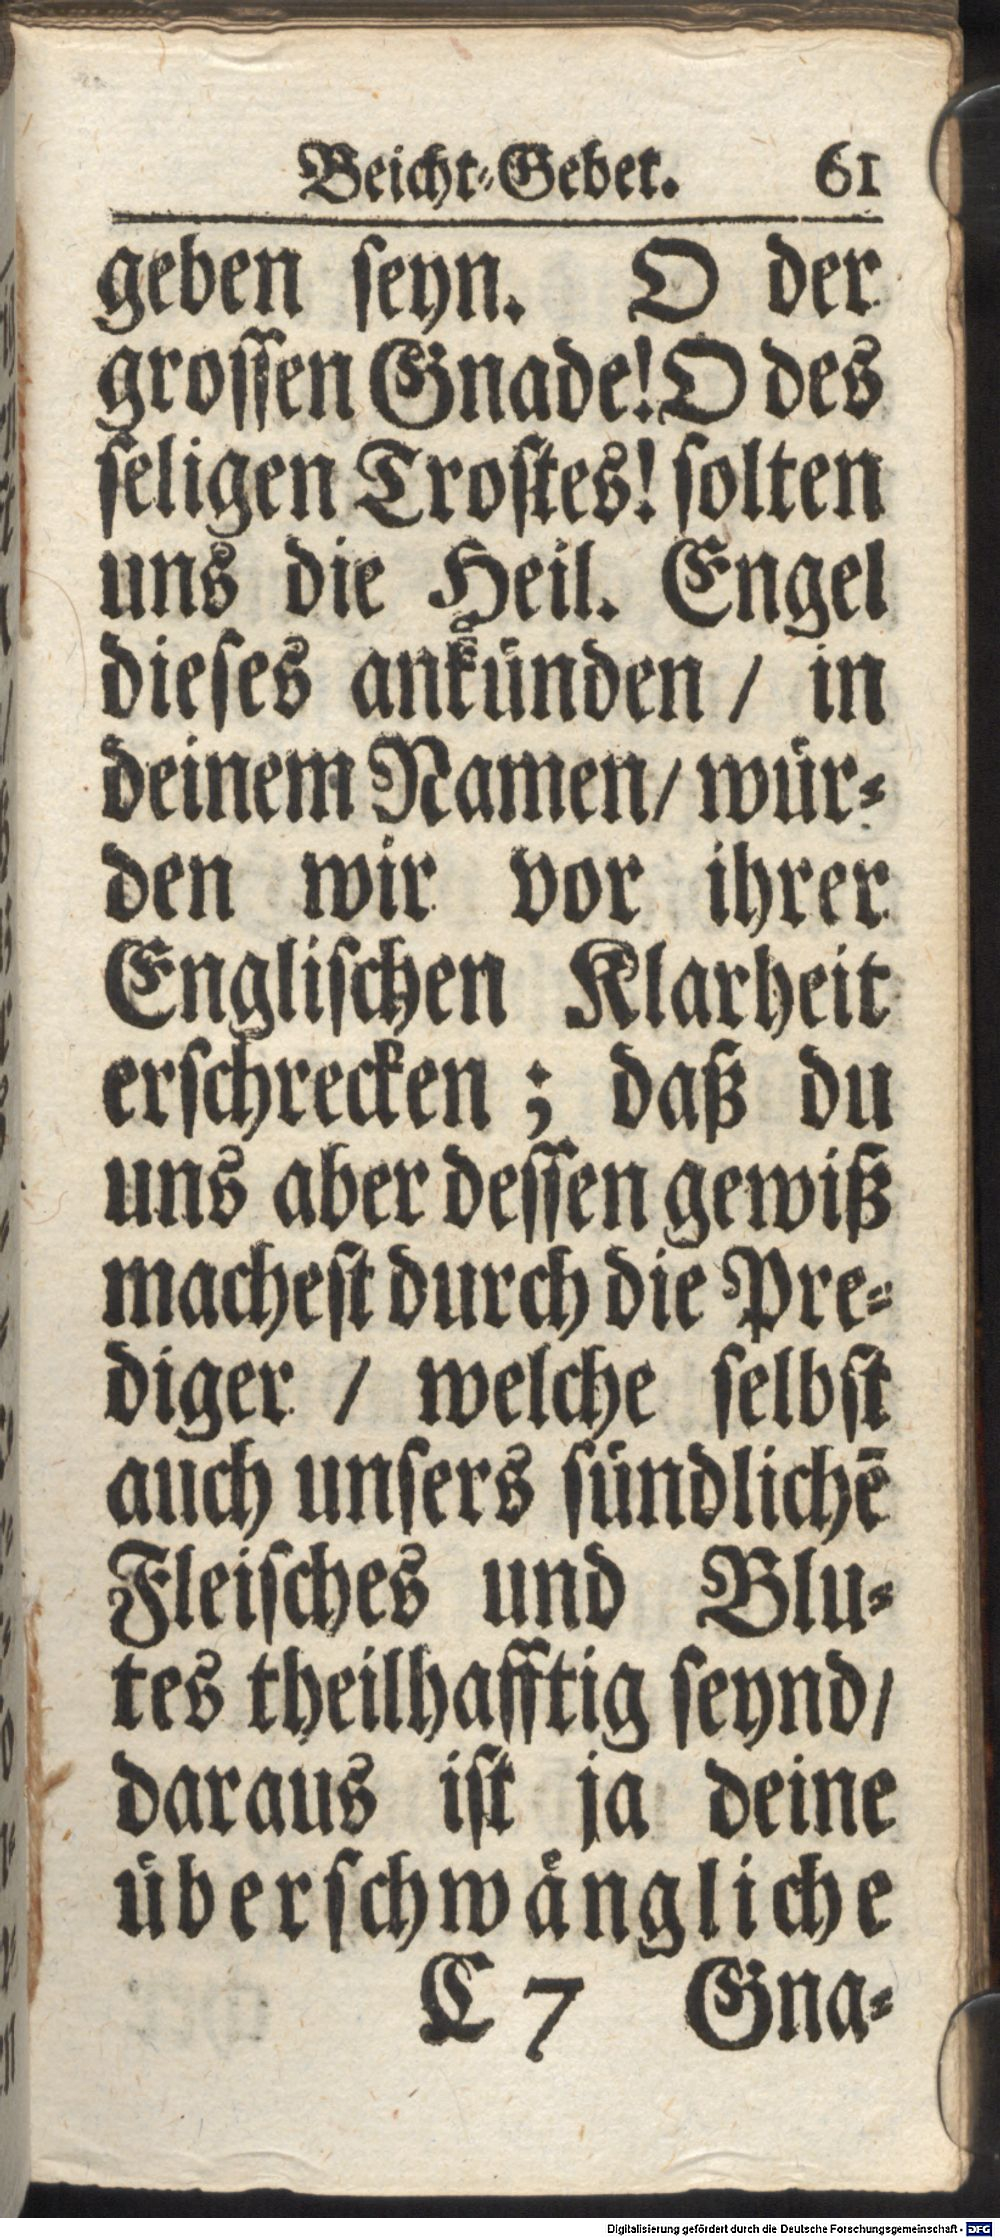 Beicht-Gebet. 61
geben seyn. O der
grossen Gnade! O des
seligen Trostes! solten
uns die Heil. Engel
dieses ankünden / in
deinem Namen / wür-
den wir vor ihrer
Englischen Klarheit
erschrecken ; daß du
uns aber dessen gewiß
machest durch die Pre-
diger / welche selbst
auch unsers sündlichē
Fleisches und Blu-
tes theilhafftig seynd /
daraus ist ja deine
überschwängliche
C 7 Gna-
Digitalisierung gefördert durch die Deutsche Forschungsgemeinschaft - DFG